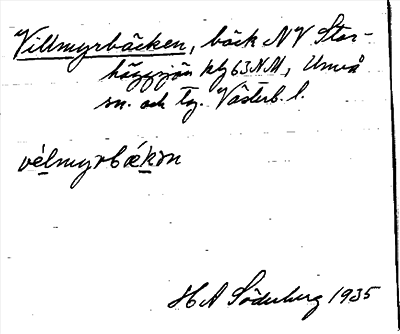 Villmyrbäcken, bäck NV Stor-
häggsjön kbl 63 NM, Umeå
sn. och tg. Västerb. l.
vélmyrbǽkən
HA Söderberg 1935